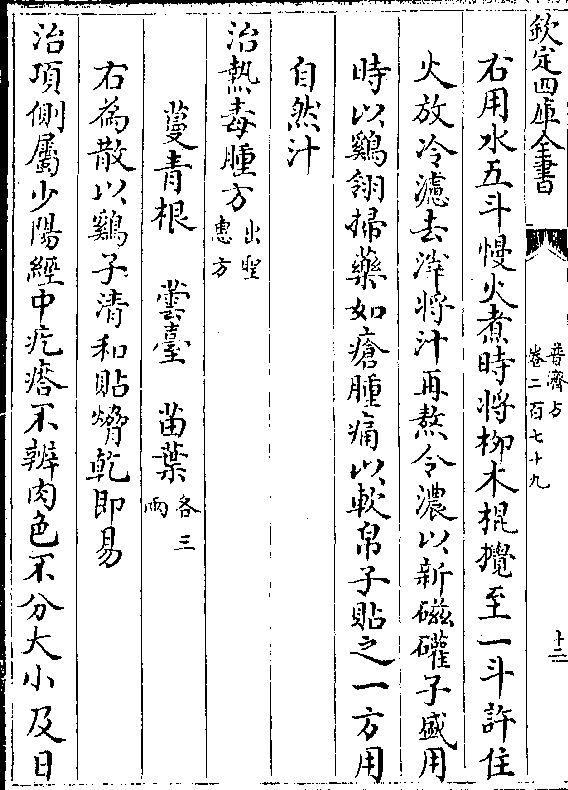 欽定四庫全書
普濟方
卷二百七十九
十二
右用水五斗慢火煮時將柳木棍攪至一斗許住
火放冷濾去滓將汁再熬令濃以新磁礶子盛用
時以鷄翎掃藥如瘡腫痛以軟帛子貼之一方用
自然汁
治熱毒腫方出聖惠方
蔓青根　蕓薹　苗葉各三兩
右為散以鷄子清和貼𦚾乾即易
治項側屬少陽經中疙瘩不辨肉色不分大小及日